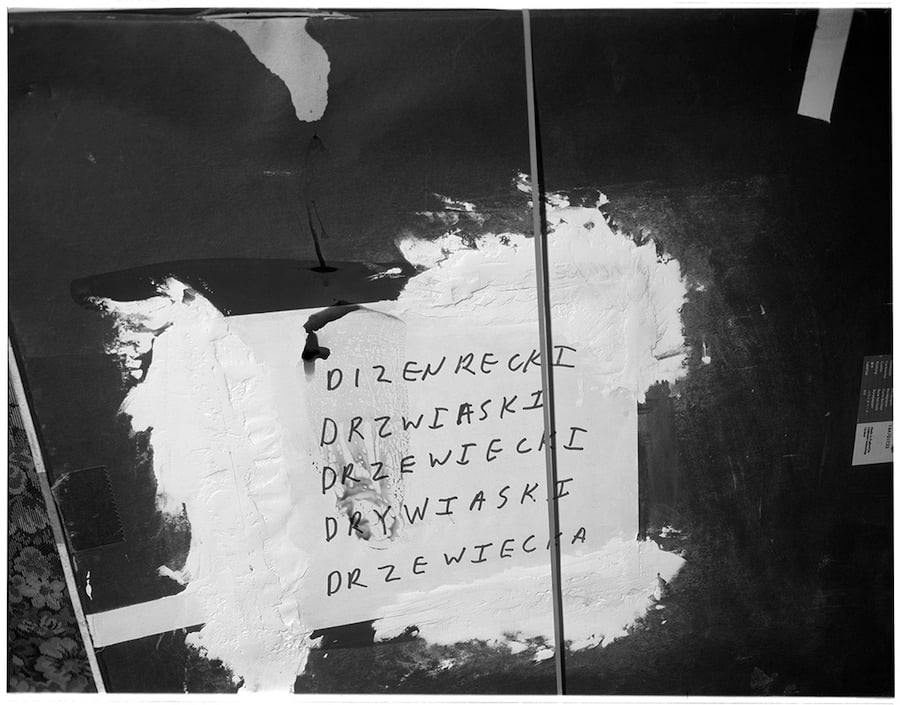 DIZENRECKI
DRZWIASKI
DRZEWIECKI
DRYWIASKI
DRZEWIECKA